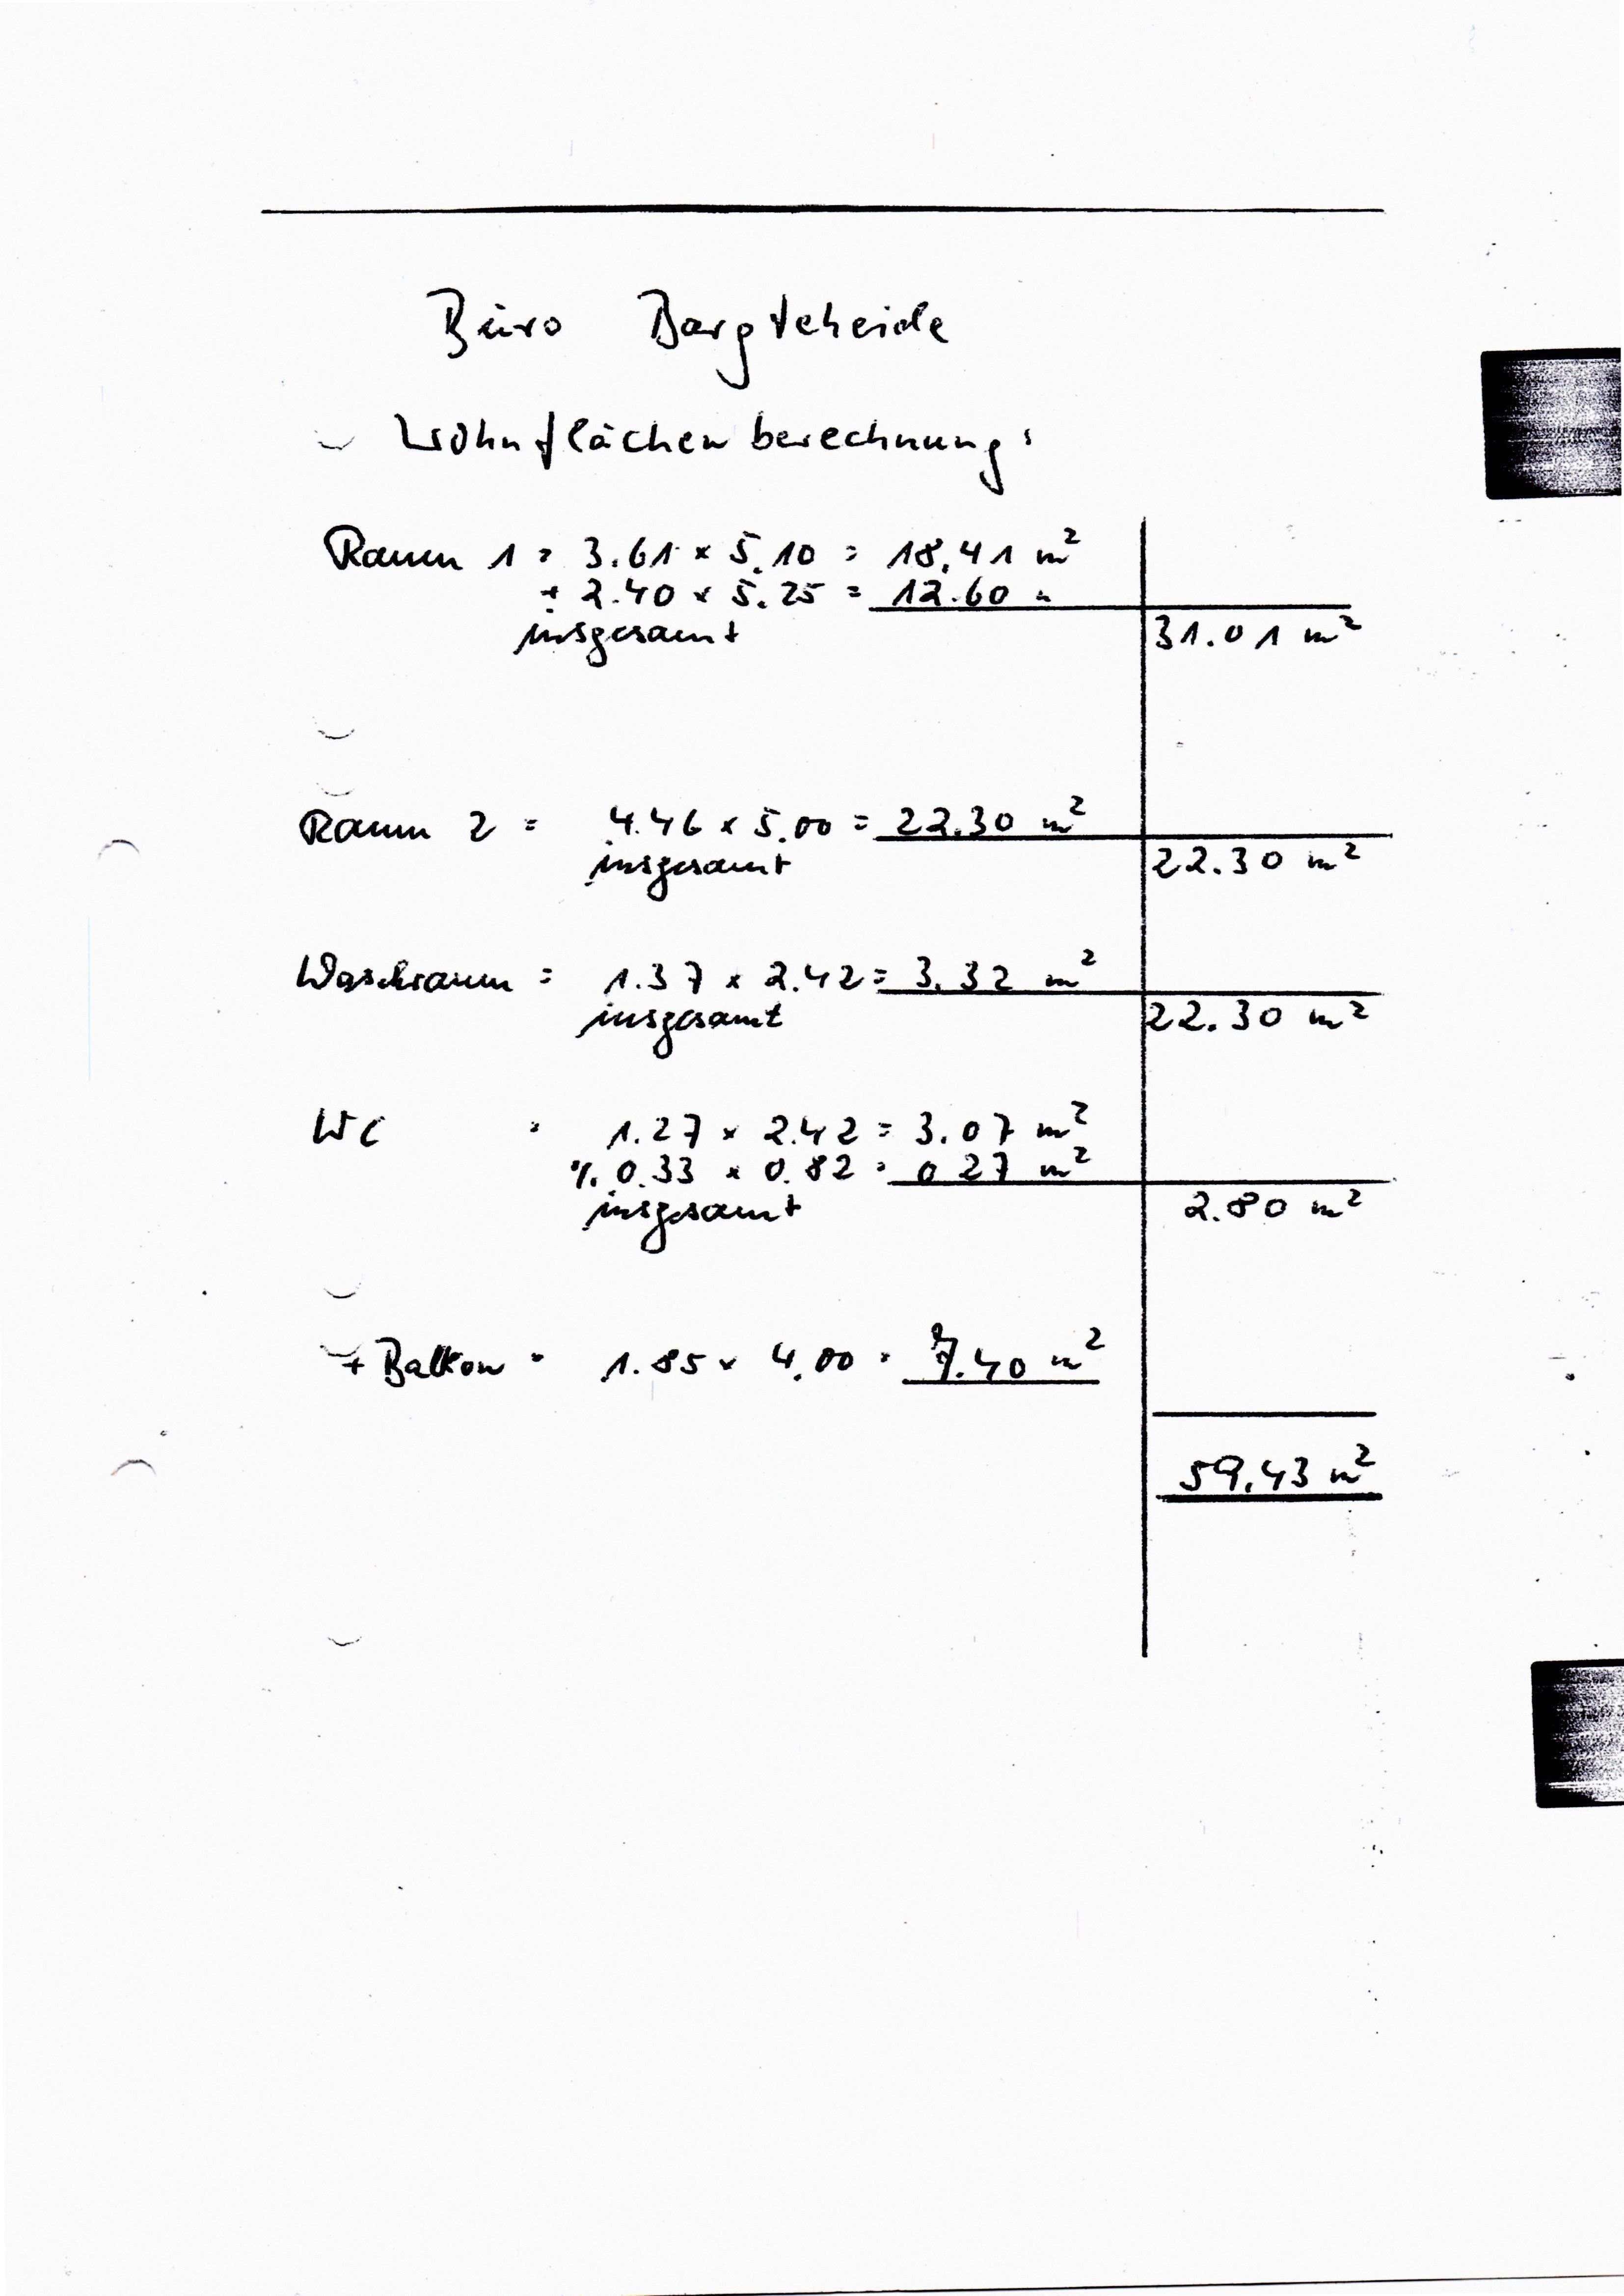 Büro Bargteheide
Wohnflächenberechnung:
Raum 1 = 3.61 x 5.10 = 18,41 m²
+ 2.40 x 5.25 = 12.60 "
insgesamt 31.01 m²
Raum 2 = 4.46 x 5.00 = 22.30 m²
insgesamt 22.30 m²
Waschraum = 1.37 x 2.42 = 3.32 m²
insgesamt 22.30 m²
WC = 1.27 x 2.42 = 3.07 m²
·/. 0.33 x 0.82 = 0.27 m²
insgesamt 2.80 m²
+ Balkon = 1.85 x 4.00 = 7.40 m²
59,43 m²